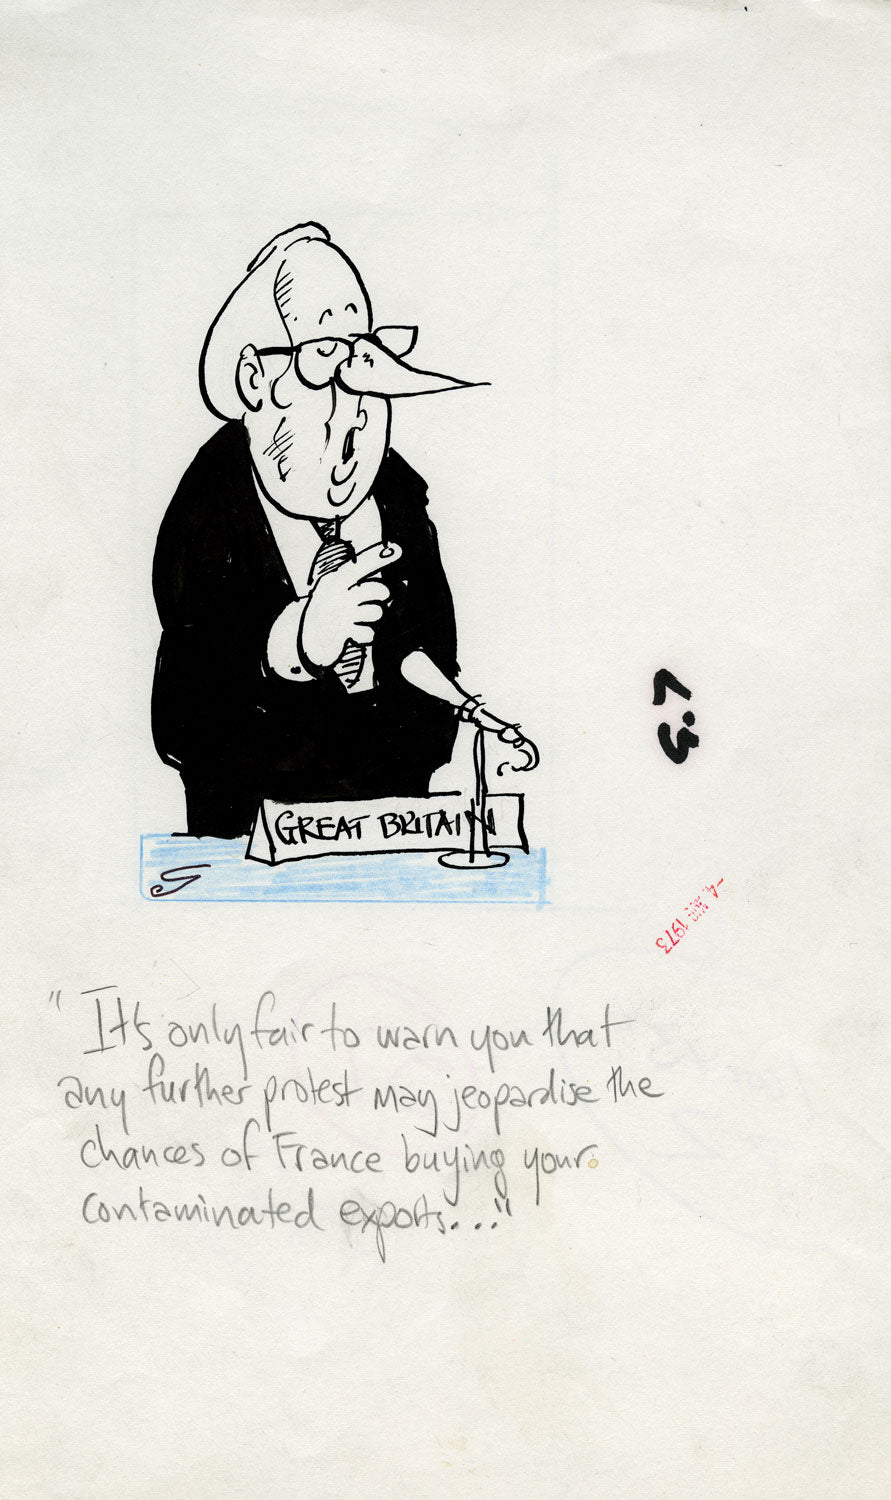 GREAT BRITAIN
"It's only fair to warn you that
any further protest may jeopardise the
chances of France buying your
contaminated exports..."
1973